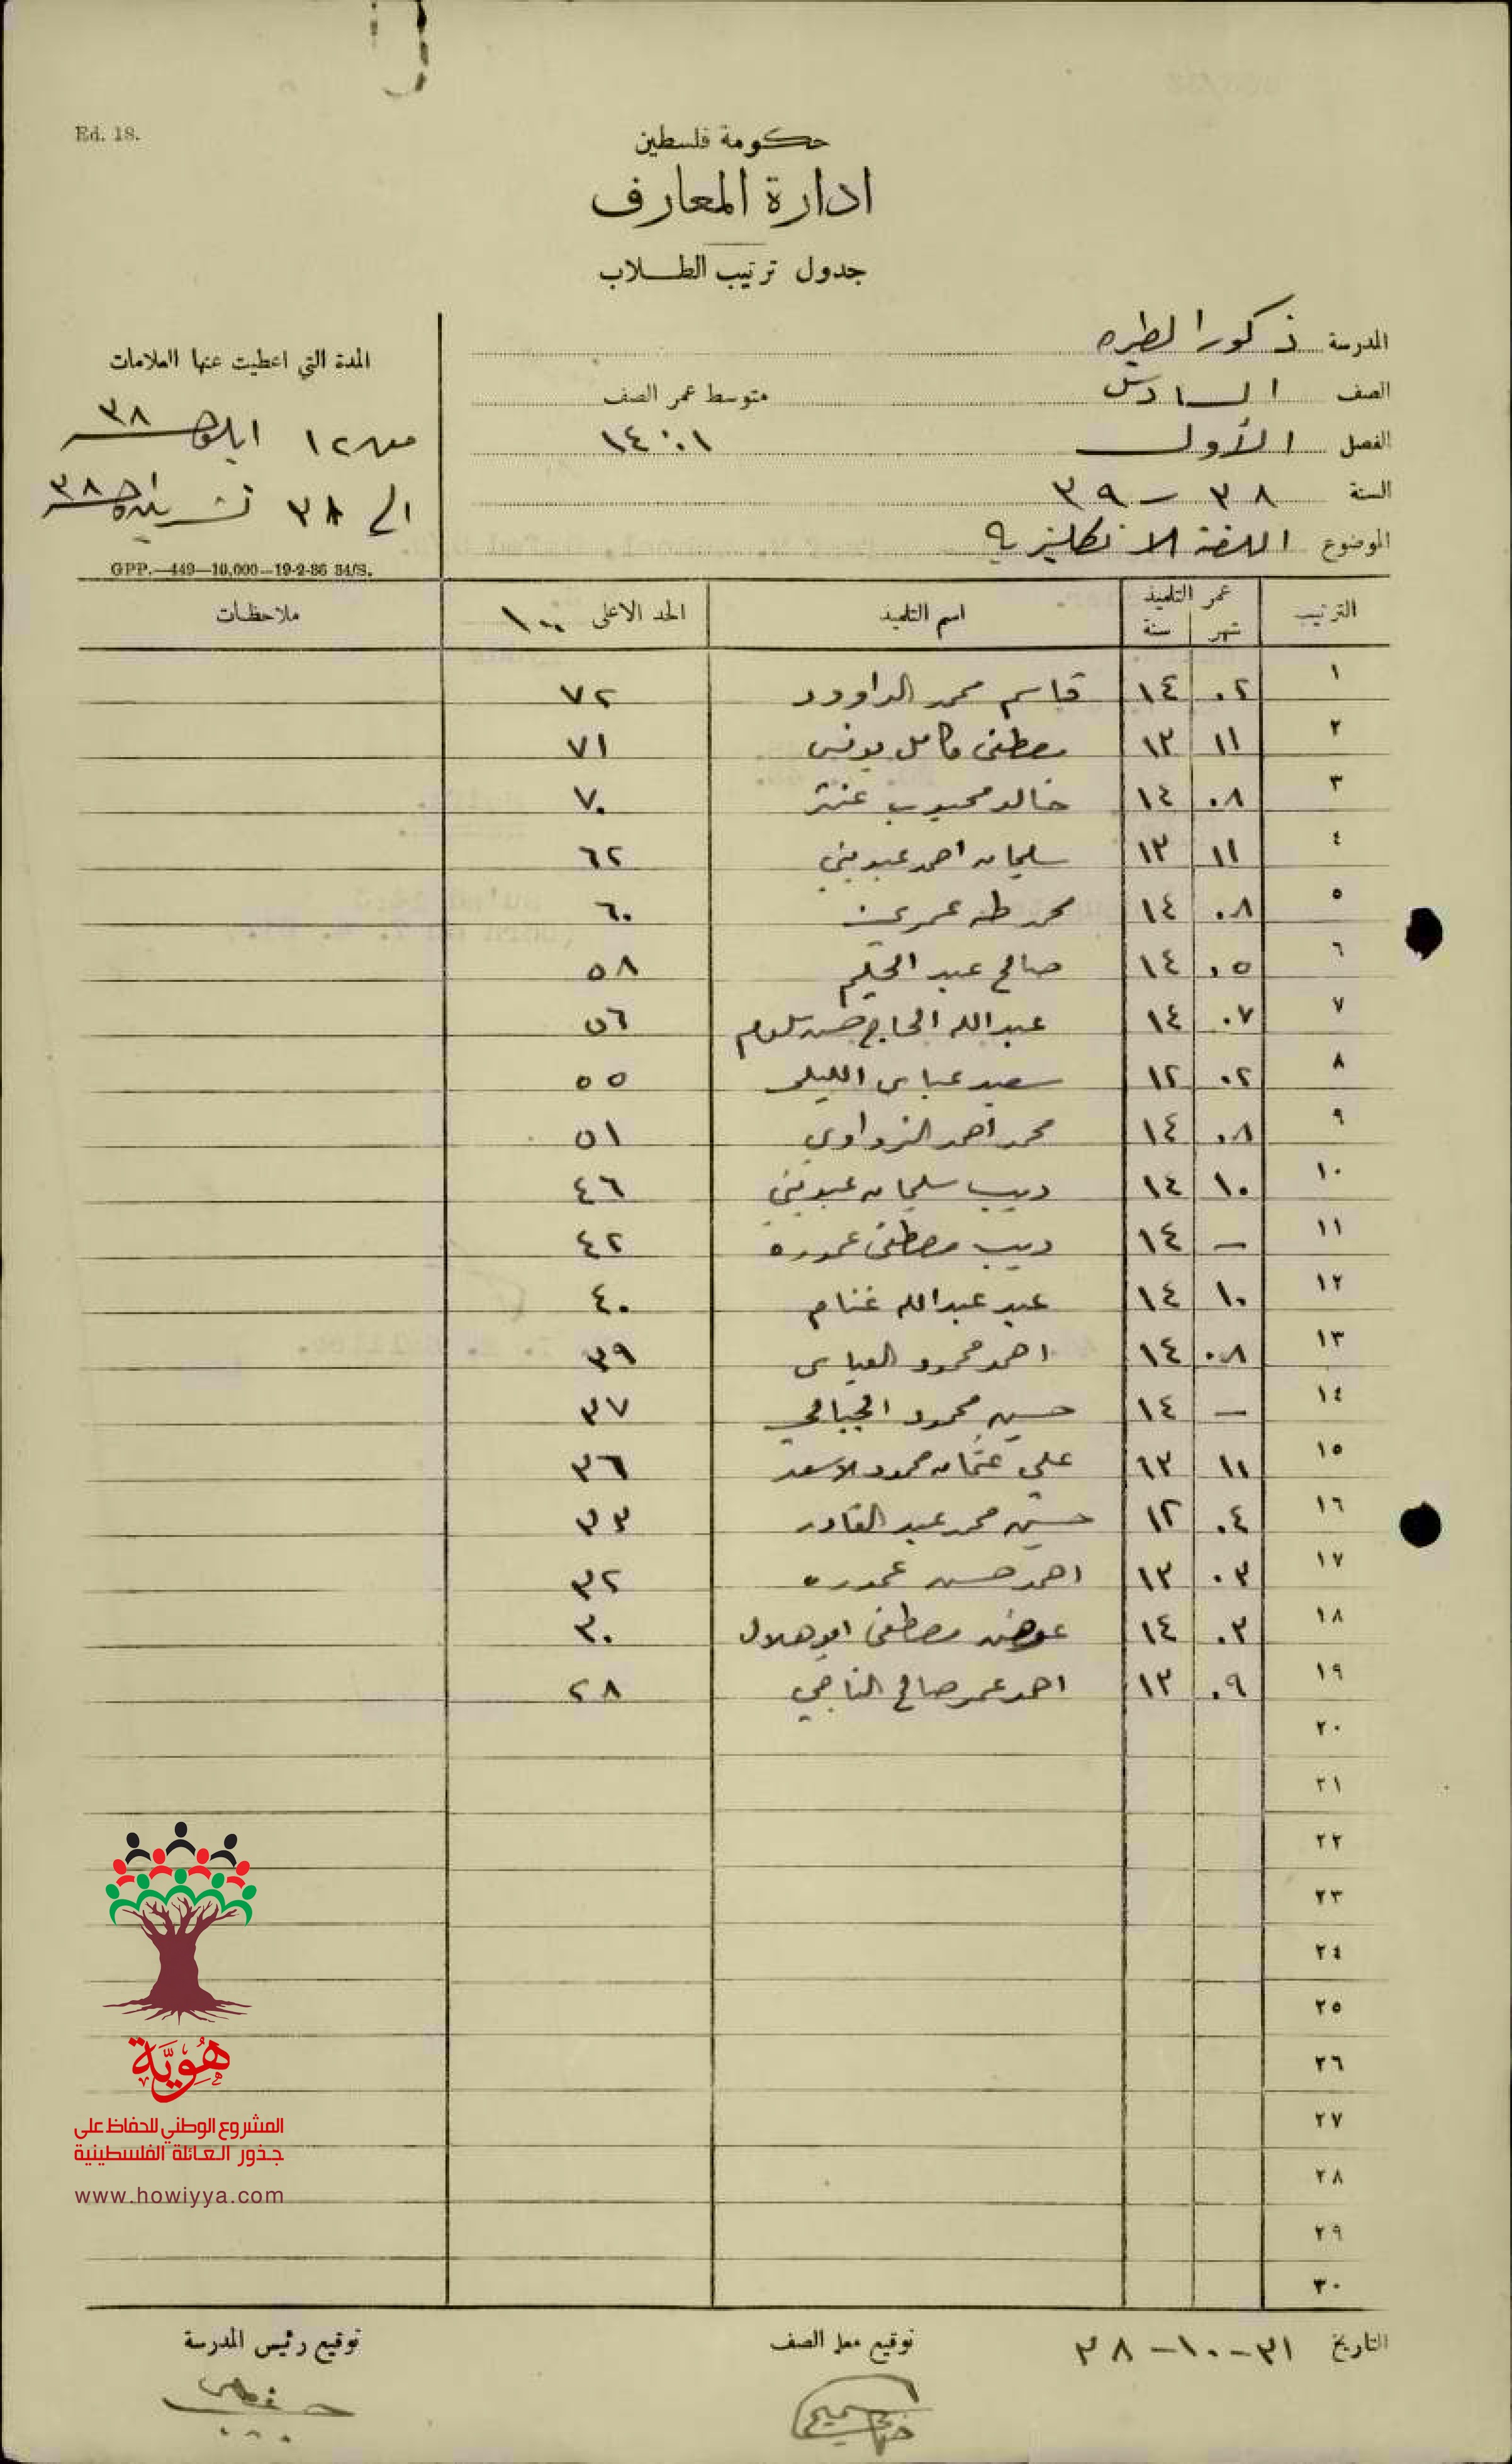 Ed. 18.
حكومة فلسطين
ادارة المعارف
جدول ترتيب الطلاب
المدرسة ذكور الطيره
الصف السادس متوسط عمر الصف
الفصل الأول ١٤:٠١
السنة ٣٨ – ٣٩
الموضوع اللغة الانكليزيه
المدة التي اعطيت عنها العلامات
من ١٢ ايلول ٣٨
الى ٣١ تشرين ٣٨
GPP.—449—10,000—19-2-36 34/S.
الترتيب عمر التلميذ شهر سنة اسم التلميذ الحد الاعلى ١٠٠ ملاحظات
١ ٠٢ ١٤ قاسم محمد الداوود ٧٢
٢ ١١ ١٣ مصطفى كامل يونس ٧١
٣ ٠٨ ١٤ خالد محبوب عنتر ٧٠
٤ ١١ ١٣ سليمان احمد عبويني ٦٢
٥ ٠٨ ١٤ محمد طه عمرين ٦٠
٦ ٠٥ ١٤ صالح عبد الحليم ٥٨
٧ ٠٧ ١٤ عبدالله الحاج حسن سلوم ٥٦
٨ ٠٢ ١٢ سعيد عباس الليلى ٥٥
٩ ٠٨ ١٤ محمد احمد الزواوي ٥١
١٠ ١٠ ١٤ ديب سليمان عبويني ٤٦
١١ – ١٤ ديب مصطفى عموره ٤٢
١٢ ١٠ ١٤ عبد عبدالله غنام ٤٠
١٣ ٠٨ ١٤ احمد محمود العباس ٣٩
١٤ – ١٤ حسين محمود الجبالي ٣٧
١٥ ١١ ١٣ علي عثمان حمود الاسعد ٣٦
١٦ ٠٤ ١٢ حسين محمد عبد القادر ٣٣
١٧ ٠٣ ١٣ احمد حسن عموره ٣٢
١٨ ٠٣ ١٤ عوض مصطفى ابو هلال ٣٠
١٩ ٠٩ ١٣ احمد عمر صالح الناجي ٢٨
٢٠
٢١
٢٢
٢٣
٢٤
٢٥
٢٦
٢٧
٢٨
٢٩
٣٠
هُويَّة
المشروع الوطني للحفاظ على
جذور العائلة الفلسطينية
www.howiyya.com
التاريخ ٣١–١٠–٣٨ توقيع معلم الصف توقيع رئيس المدرسة